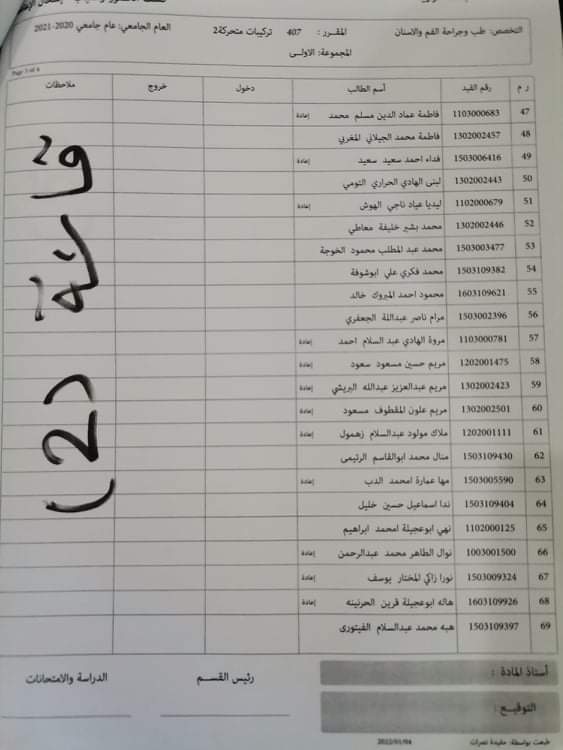 التخصص: طب وجراحة الفم والاسنان المقرر : 407 تركيبات متحركة2 العام الجامعي: عام جامعي 2020-2021
المجموعة: الاولى
ر م رقم القيد أسم الطالب دخول خروج ملاحظات
47 1103000683 فاطمة عماد الدين مسلم محمد إعادة
48 1302002457 فاطمة محمد الجيلاني المغربي
49 1503006416 فداء احمد سعيد سعيد إعادة
50 1302002443 لبنى الهادي الحراري التومي
51 1102000679 ليديا عياد ناجي الهوش إعادة
52 1302002446 محمد بشير خليفة معاطي
53 1503003477 محمد عبد المطلب محمود الخوجة
54 1503109382 محمد فكري علي ابوشوفة
55 1603109621 محمود احمد المبروك خالد
56 1503002396 مرام ناصر عبدالله الجعفري
57 1103000781 مروة الهادي عبد السلام احمد إعادة
58 1202001475 مريم حسين مسعود سعود إعادة
59 1302002423 مريم عبدالعزيز عبدالله البريشي إعادة
60 1302002501 مريم علون المقطوف مسعود إعادة
61 1202001111 ملاك مولود عبدالسلام زهمول إعادة
62 1503109430 منال محمد ابوالقاسم الرئيمى
63 1503005590 مها عمارة امحمد الدب إعادة
64 1503109404 ندا اسماعيل حسين خليل
65 1102000125 نهي ابوعجيلة امحمد ابراهيم
66 1003001500 نوال الطاهر محمد عبدالرحمن إعادة
67 1503009324 نورا زاكي المختار يوسف إعادة
68 1603109926 هاله ابوعجيلة قرين الحرنينه إعادة
69 1503109397 هبه محمد عبدالسلام الفيتورى
(2)
أستاذ المادة : رئيس القسم الدراسة والامتحانات
التوقيع :
طبعت بواسطة: مفيدة نصرات 2022/01/04